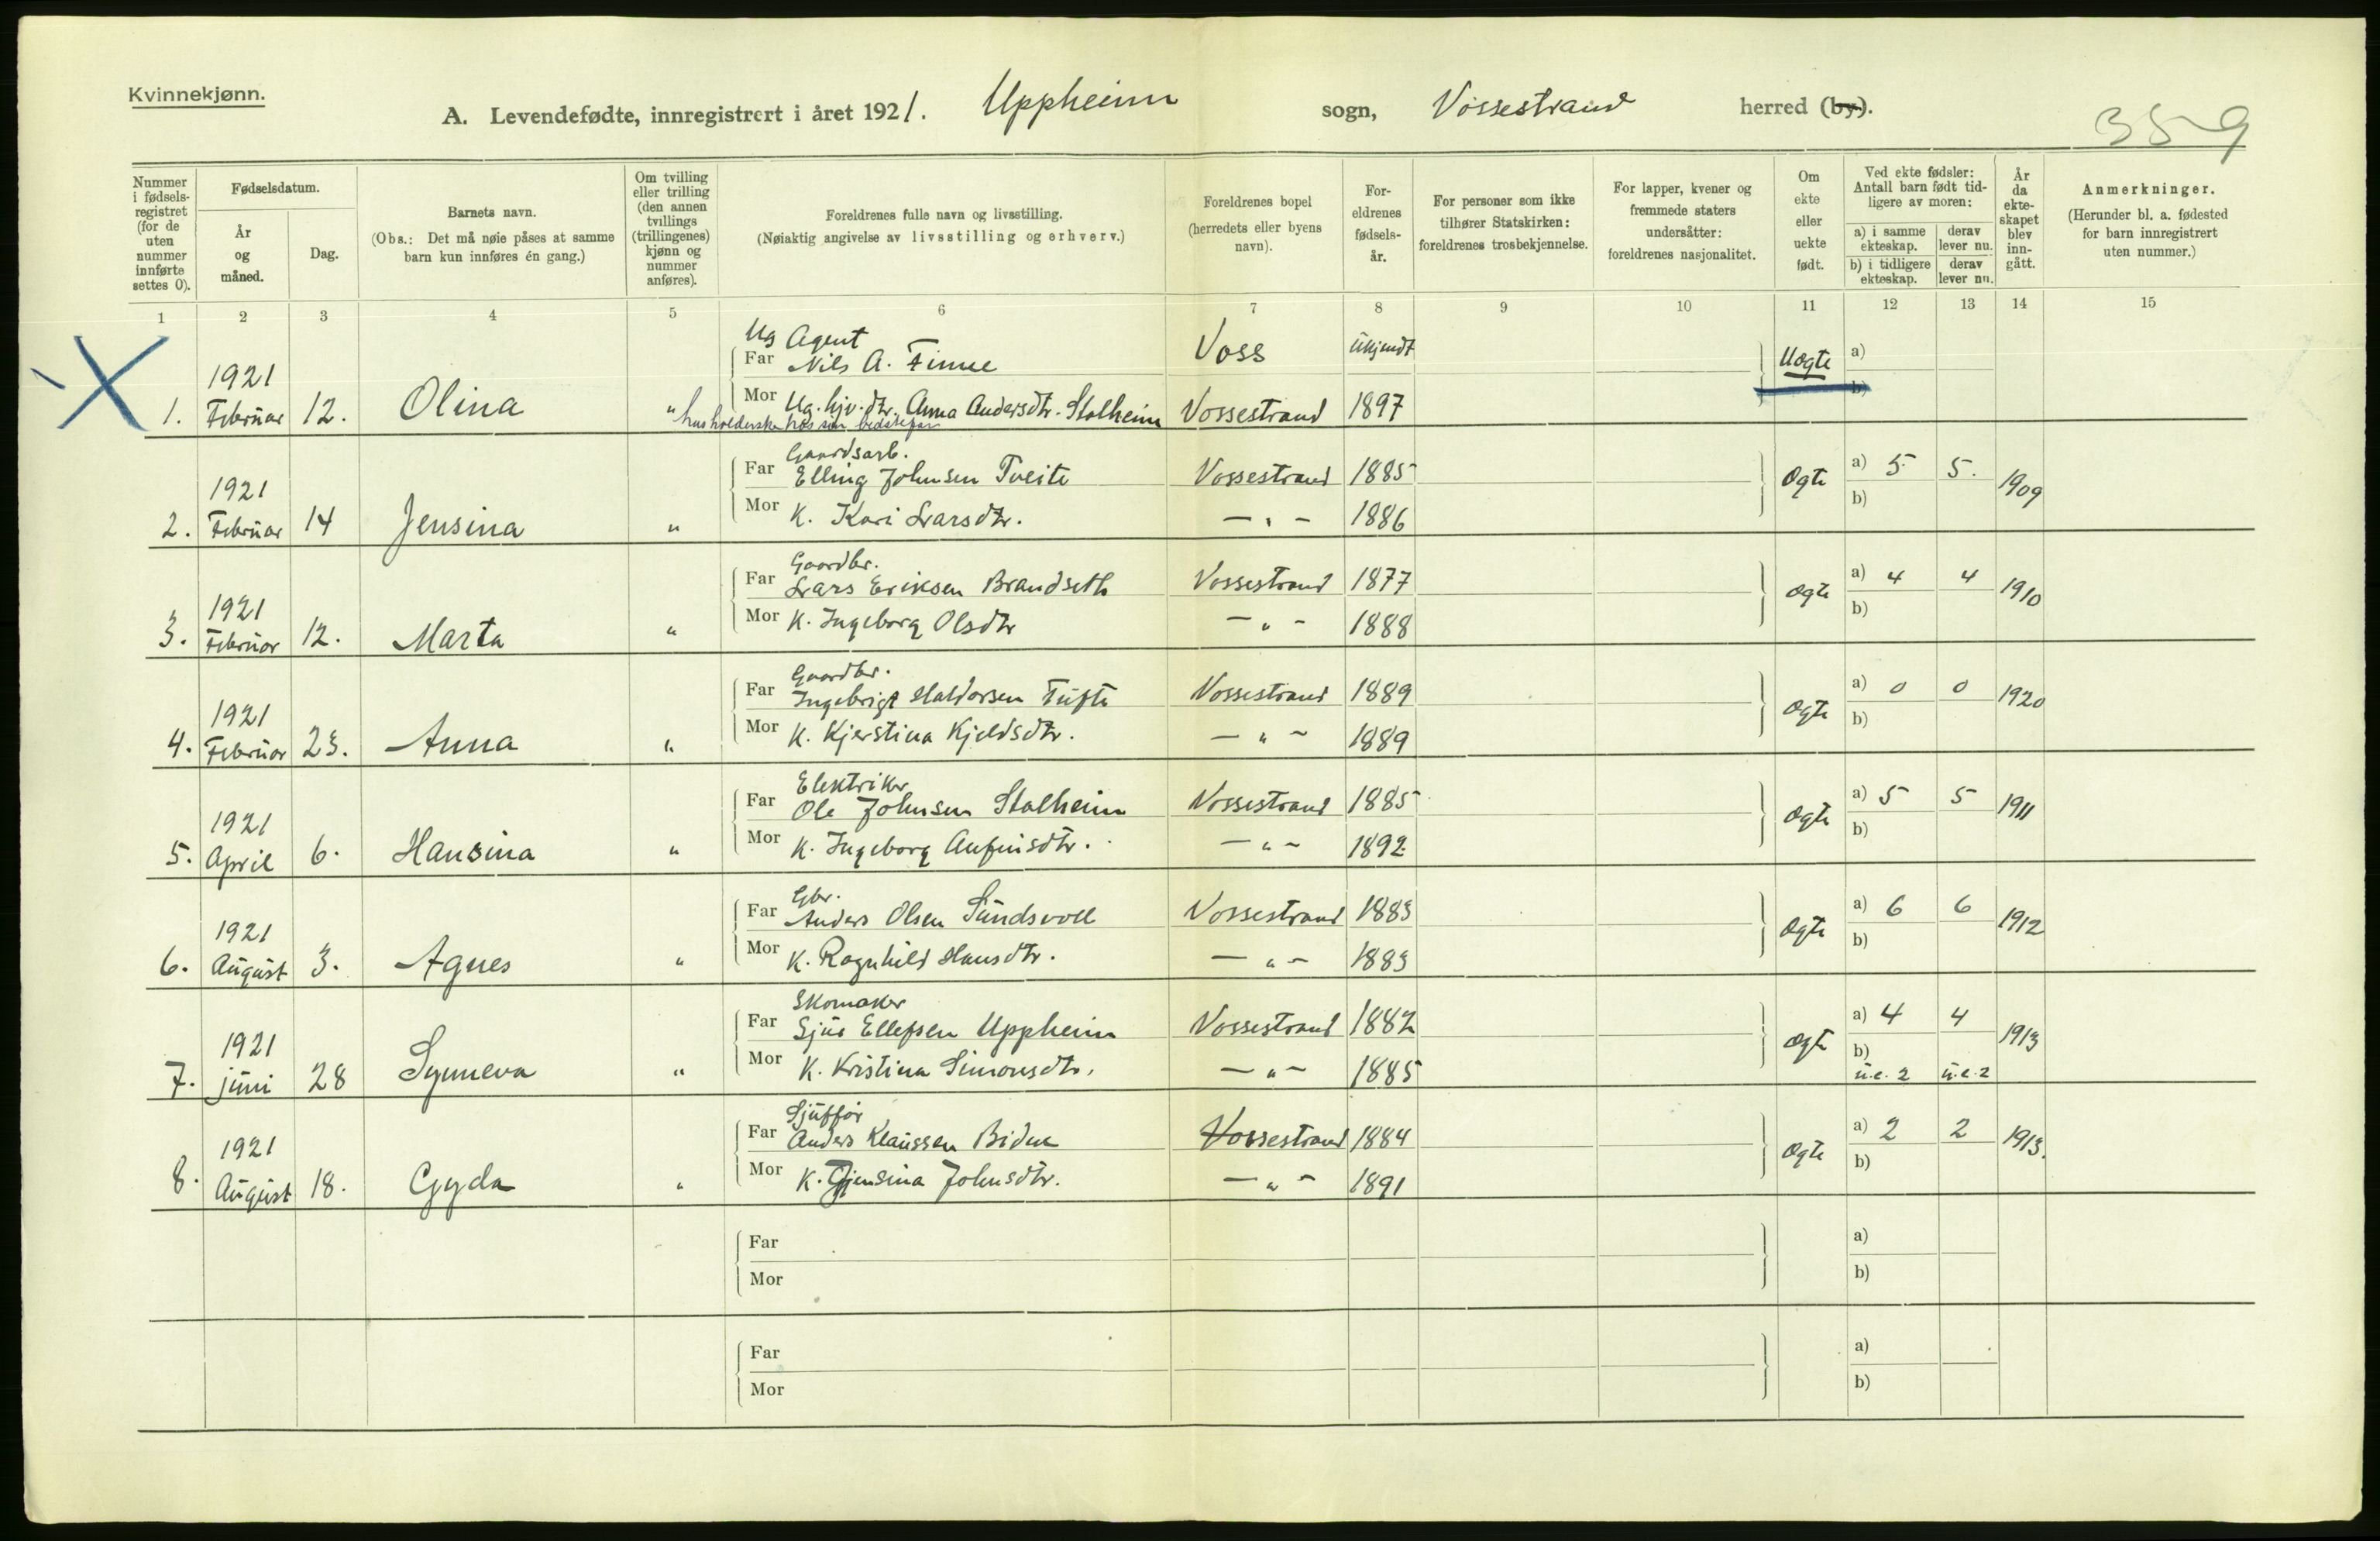 Kvinnekjønn.
A. Levendefødte, innregistrert i året 1921. Uppheim sogn, Vossestrand herred (by).
359
Nummer i fødsels-registret (for de uten nummer innførte settes 0).
Fødselsdatum.
År og måned.
Dag.
Barnets navn.
(Obs.: Det må nøie påses at samme barn kun innføres én gang.)
Om tvilling eller trilling (den annen tvillings (trillingenes) kjønn og nummer anføres).
Foreldrenes fulle navn og livsstilling.
(Nøiaktig angivelse av livsstilling og erhverv.)
Foreldrenes bopel (herredets eller byens navn).
For-eldrenes fødsels-år.
For personer som ikke tilhører Statskirken: foreldrenes trosbekjennelse.
For lapper, kvener og fremmede staters undersåtter: foreldrenes nasjonalitet.
Om ekte eller uekte født.
Ved ekte fødsler: Antall barn født tid-ligere av moren:
a) i samme ekteskap.
derav lever nu.
b) i tidligere ekteskap.
derav lever nu.
År da ekte-skapet blev inn-gått.
Anmerkninger.
(Herunder bl. a. fødested for barn innregistrert uten nummer.)
1 2 3 4 5 6 7 8 9 10 11 12 13 14 15
Ug Agent
Far Nils A. Finne Voss Ukjendt Uægte a)
1921
1. Februar 12. Olina " Mor Ug. hjv. dtr. Anna Andersdtr. Stalheim Vossestrand 1897 b)
husholderske hos sin bedstefar
Gaardsarb.
Far Elling Johnsen Tveite Vossestrand 1885 Ægte a) 5 5. 1909
1921
2. Februar 14 Jensina " Mor K. Kari Larsdtr. — " — 1886 b)
Gaardbr.
Far Lars Eriksen Brandseth Vossestrand 1877 Ægte a) 4 4 1910
1921
3. Februar 12. Marta " Mor K. Ingeborg Olsdtr — " — 1888 b)
Gaardbr.
Far Ingebrigt Haldorsen Tufte Vossestrand 1889 Ægte a) 0 0 1920
1921
4. Februar 23. Anna " Mor K. Kjerstina Kjeldsdtr. — " — 1889 b)
Elektriker
Far Ole Johnsen Stalheim Vossestrand 1885 Ægte a) 5 5 1911
1921
5. April 6. Hansina " Mor K. Ingeborg Anfinsdtr. — " — 1892 b)
Gbr.
Far Anders Olsen Sundsvoll Vossestrand 1883 Ægte a) 6 6 1912
1921
6. August 3. Agnes " Mor K. Ragnhild Hansdtr. — " — 1883 b)
Skomaker
Far Sjur Ellefsen Uppheim Vossestrand 1882 Ægte a) 4 4 1913
1921
7. juni 28 Synneva " Mor K. Kristina Simonsdtr. — " — 1885 b) u.e. 2 u.e. 2
Sjuffør
Far Anders Klaussen Vossestrand 1884 Ægte a) 2 2 1913.
1921
8. August 18. Gyda " Mor K. Johnsdtr. — " — 1891 b)
Far a)
Mor b)
Far a)
Mor b)